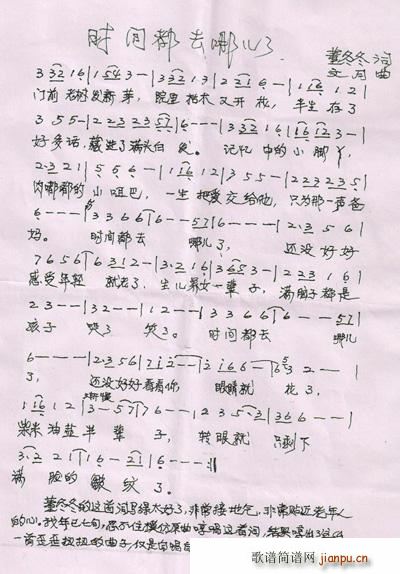 时间都去哪儿了
董冬冬 词
文月 曲
3 3̲2̲ 1 6 | 1 5̲4̲ 3 — | 3 3̲2̲ 1 3 | 2 2̲1̲ 6 — | 1 1̲6̲ 1 2 |
门前 老树 发新 芽， 院里 枯木 又开 花， 半生 存了
3 5 5 — | 2 2 3 2 3 5 7 | 6 — — — | 3 3̲2̲ 1 6 | 1 6 1 2 3 — |
好 多话， 藏进了 满头白 发。 记忆 中的 小 脚丫，
2· 3 2 1 | 5 5 6 — | 1 1̲6̲ 1 2 | 3 5 5 — | 2 2 3 2 3 5 |
肉嘟嘟的 小 咀巴， 一生 把爱 交给他， 只为那一声爸
6 — — — | 3 3 6 6 | 6 — — 5 7 | 6 — — — | 2· 3 5 6 |
妈。 时间都去 哪儿了， 还没 好好
7 6 5 6 | 6 3 1 2 — | 3· 2 1 6 | 3 6 5 3 — | 2 2 3 1 6 |
感受年轻 就老了， 生儿 养女一 辈 子， 满脑子 都是
2 3 — — | 2 — — | 1 2 — — | 3 3 6 6 | 6 — — 5 7 |
孩子 哭了 笑了。 时间都去 哪儿
6 — — — | 2· 3 5 6 | 7 1 2 — | 2 1 6 6 — | 6 3 2 — |
了， 还没好好看看你 眼睛就 花 了，
1 1̲6̲ 1 2 | 3 — 5 7 | 7 6 — — | 2 3 5 — 3 | 3 6 6 — — |
柴米 油盐 半 辈 子， 转眼就 只剩下
3· 2 2 1 | 1 6 — 2 1 | 6 — — — ‖
满 脸的 皱 纹 了。
董冬冬的这首词写得太好了，非常接地气，非常贴近老年人
的心。我年已七旬，忍不住模仿原曲哼唱这首词，结果哼出了这么
一首歪歪扭扭的曲子，仅是自唱自
歌谱简谱网
jianpu.cn